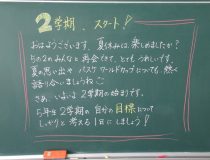 2学期、スタート!
おはようございます。夏休みは楽しめましたか?
5の2のみんなと再会できて、とてもうれしいです。
夏の思い出やバスケワールドカップについても熱く
語り合いましょうね
さあ、いよいよ2学期の始まりです。
5年生2学期の自分の目標について
しっかりと考える1日にしましょう!